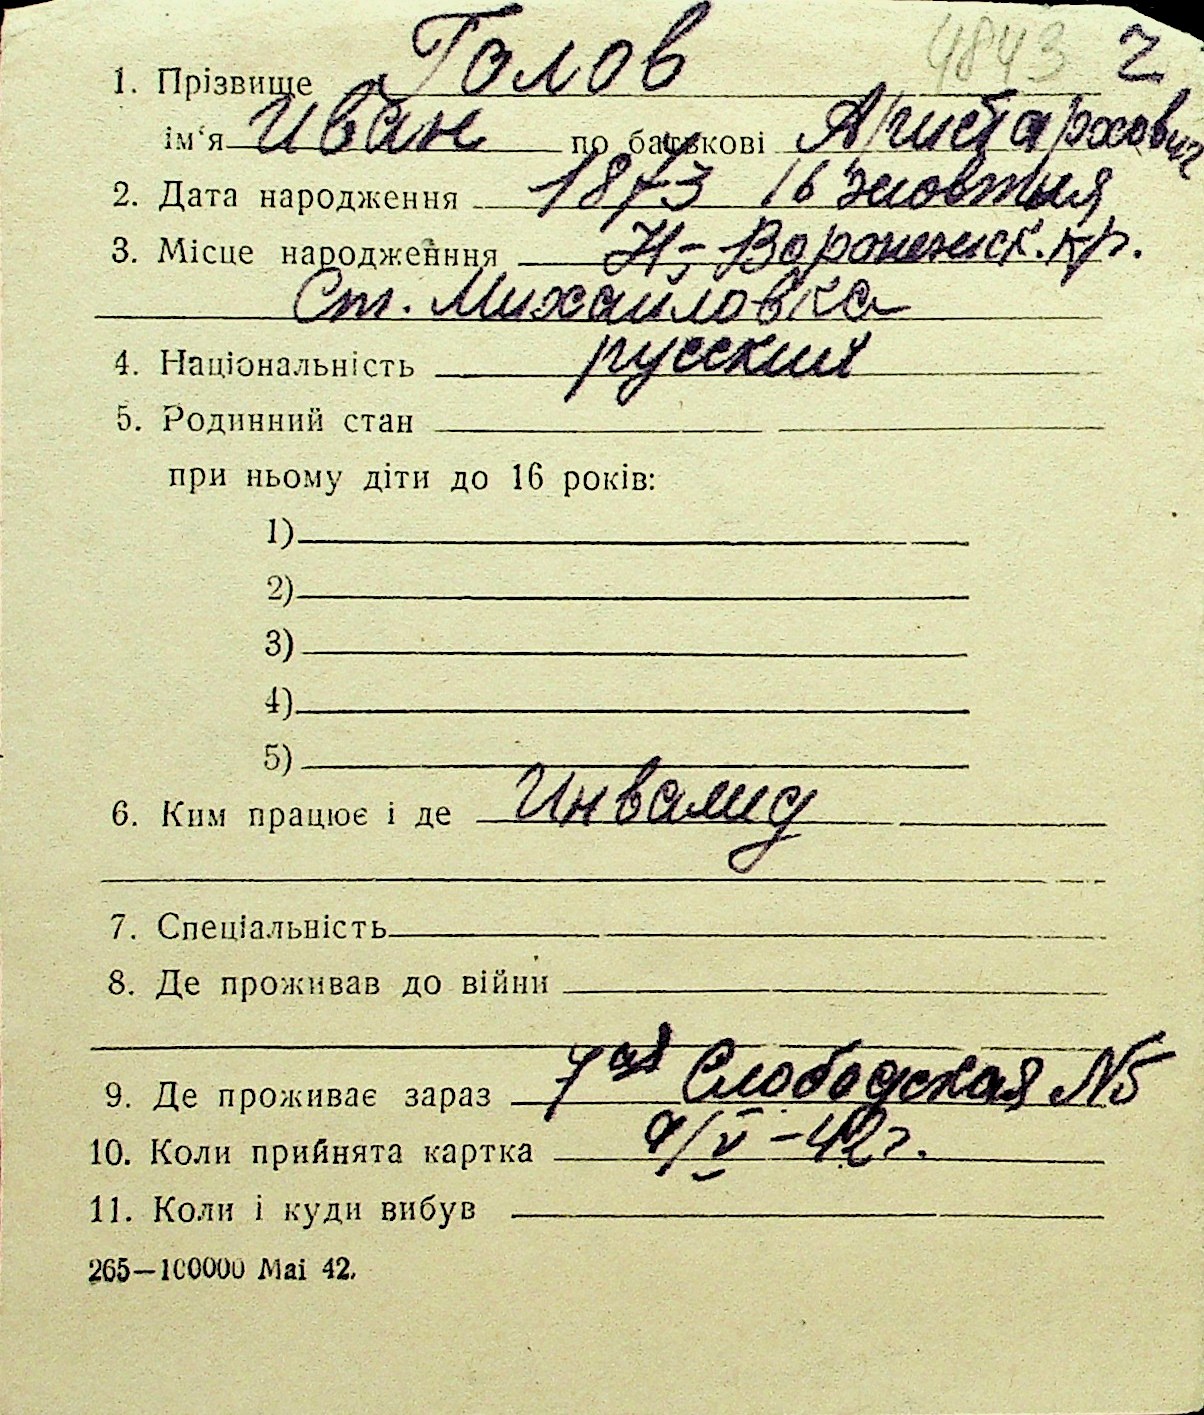 4843 2
1. Прізвище Голов
ім‘я Иван по батькові Аристархович
2. Дата народження 1873 16 жовтня
3. Місце народженння Н-Воронежск. кр.
Ст. Михайловка
4. Національність русский
5. Родинний стан
при ньому діти до 16 років:
1)
2)
3)
4)
5)
6. Ким працює і де Инвалид
7. Спеціальність
8. Де проживав до війни
9. Де проживає зараз 7ая Слободская №5
10. Коли прийнята картка /V-42 г.
11. Коли і куди вибув
265—100000 Mai 42.